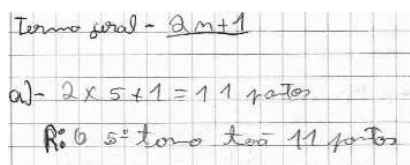 Termo geral - 2n+1
a)- 2 x 5 + 1 = 11 pontos
R: O 5º termo terá 11 pontos